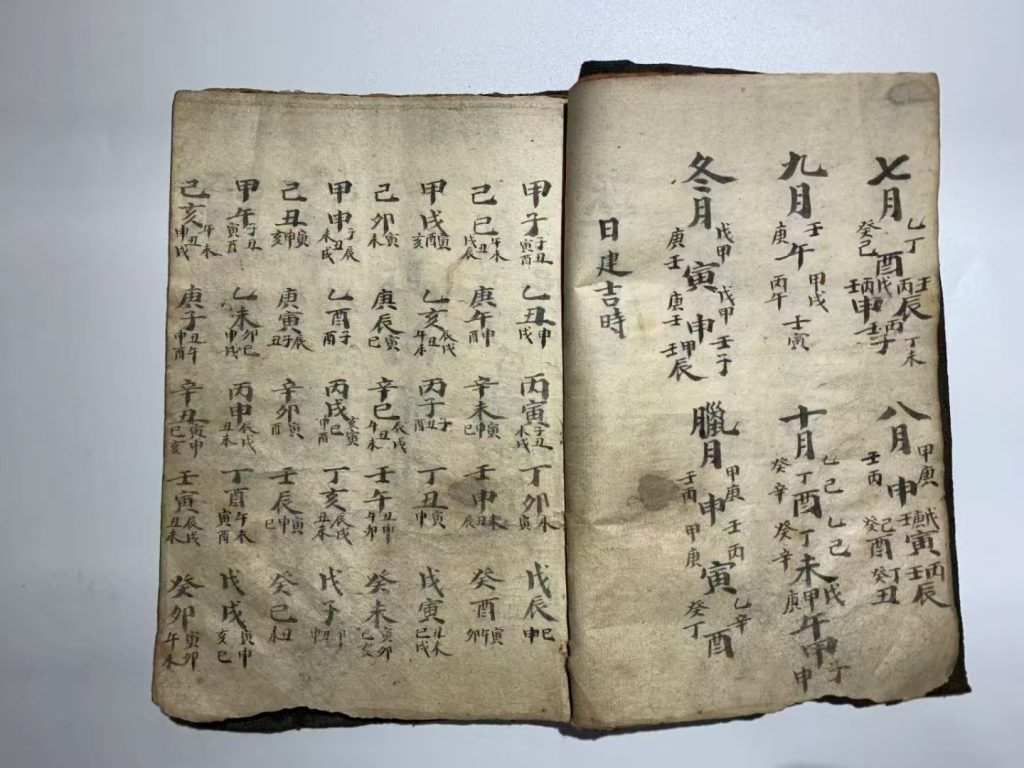 七月 乙丁 癸己 酉 丙戊 壬辰 丙壬申 丙壬子 丁未
八月 甲庚 壬丙 申 癸己 酉 寅 壬丙辰 癸丁丑
九月 壬庚 午 甲戌 丙午 壬寅
十月 乙己 癸辛 丁酉 乙己 癸辛 丁未 戊庚 甲午 甲子 申
冬月 戊甲 庚壬 寅 戊甲 庚壬 申 壬子 甲壬辰
臘月 甲庚 壬丙 申 壬丙 甲庚 寅 乙辛 癸丁 酉
日建吉時
甲子 子丑寅酉 乙丑 申戌 丙寅 子丑未戌 丁卯 未寅 戊辰 巳申
己巳 午未丑戌辰 庚午 丑申酉 辛未 寅申巳 壬申 未丑辰 癸酉 寅午卯
甲戌 寅酉亥 乙亥 辰戌丑午未 丙子 子丑 丁丑 寅申 戊寅 丑未巳戌
己卯 寅未 庚辰 寅巳 辛巳 辰戌丑午未 壬午 丑申午卯 癸未 寅卯巳亥
甲申 子丑辰未戌 乙酉 子午 丙戌 亥寅巳申酉 丁亥 辰戌丑未 戊子 卯丑申
己丑 寅申亥 庚寅 辰子丑 辛卯 寅申酉 壬辰 寅申巳 癸巳 丑未
甲午 子丑寅酉 乙未 卯巳申戌 丙申 辰戌丑未 丁酉 午未寅酉 戊戌 寅申亥巳
己亥 午未申戌 庚子 丑午申酉 辛丑 寅申巳亥 壬寅 辰戌丑未 癸卯 寅卯午未